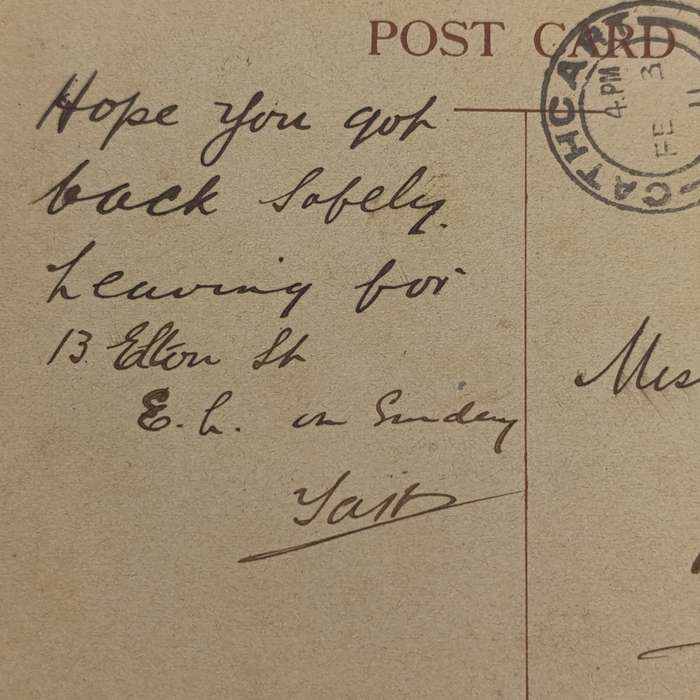 POST CARD
CATHCART
4. PM
FE 3
11
Hope you got
back safely.
Leaving for
13 Elton St
E. L. on Sunday
Miss